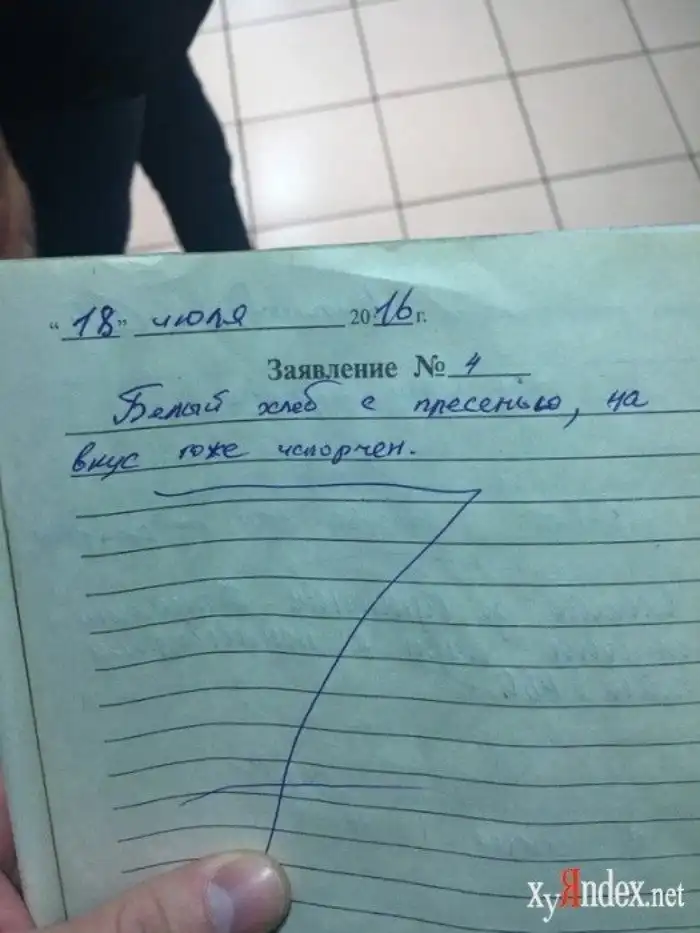 "18" июля 2016 г.
Заявление № 4
Белый хлеб с пресенью, на
вкус тоже испорчен.
XyЯndex.net